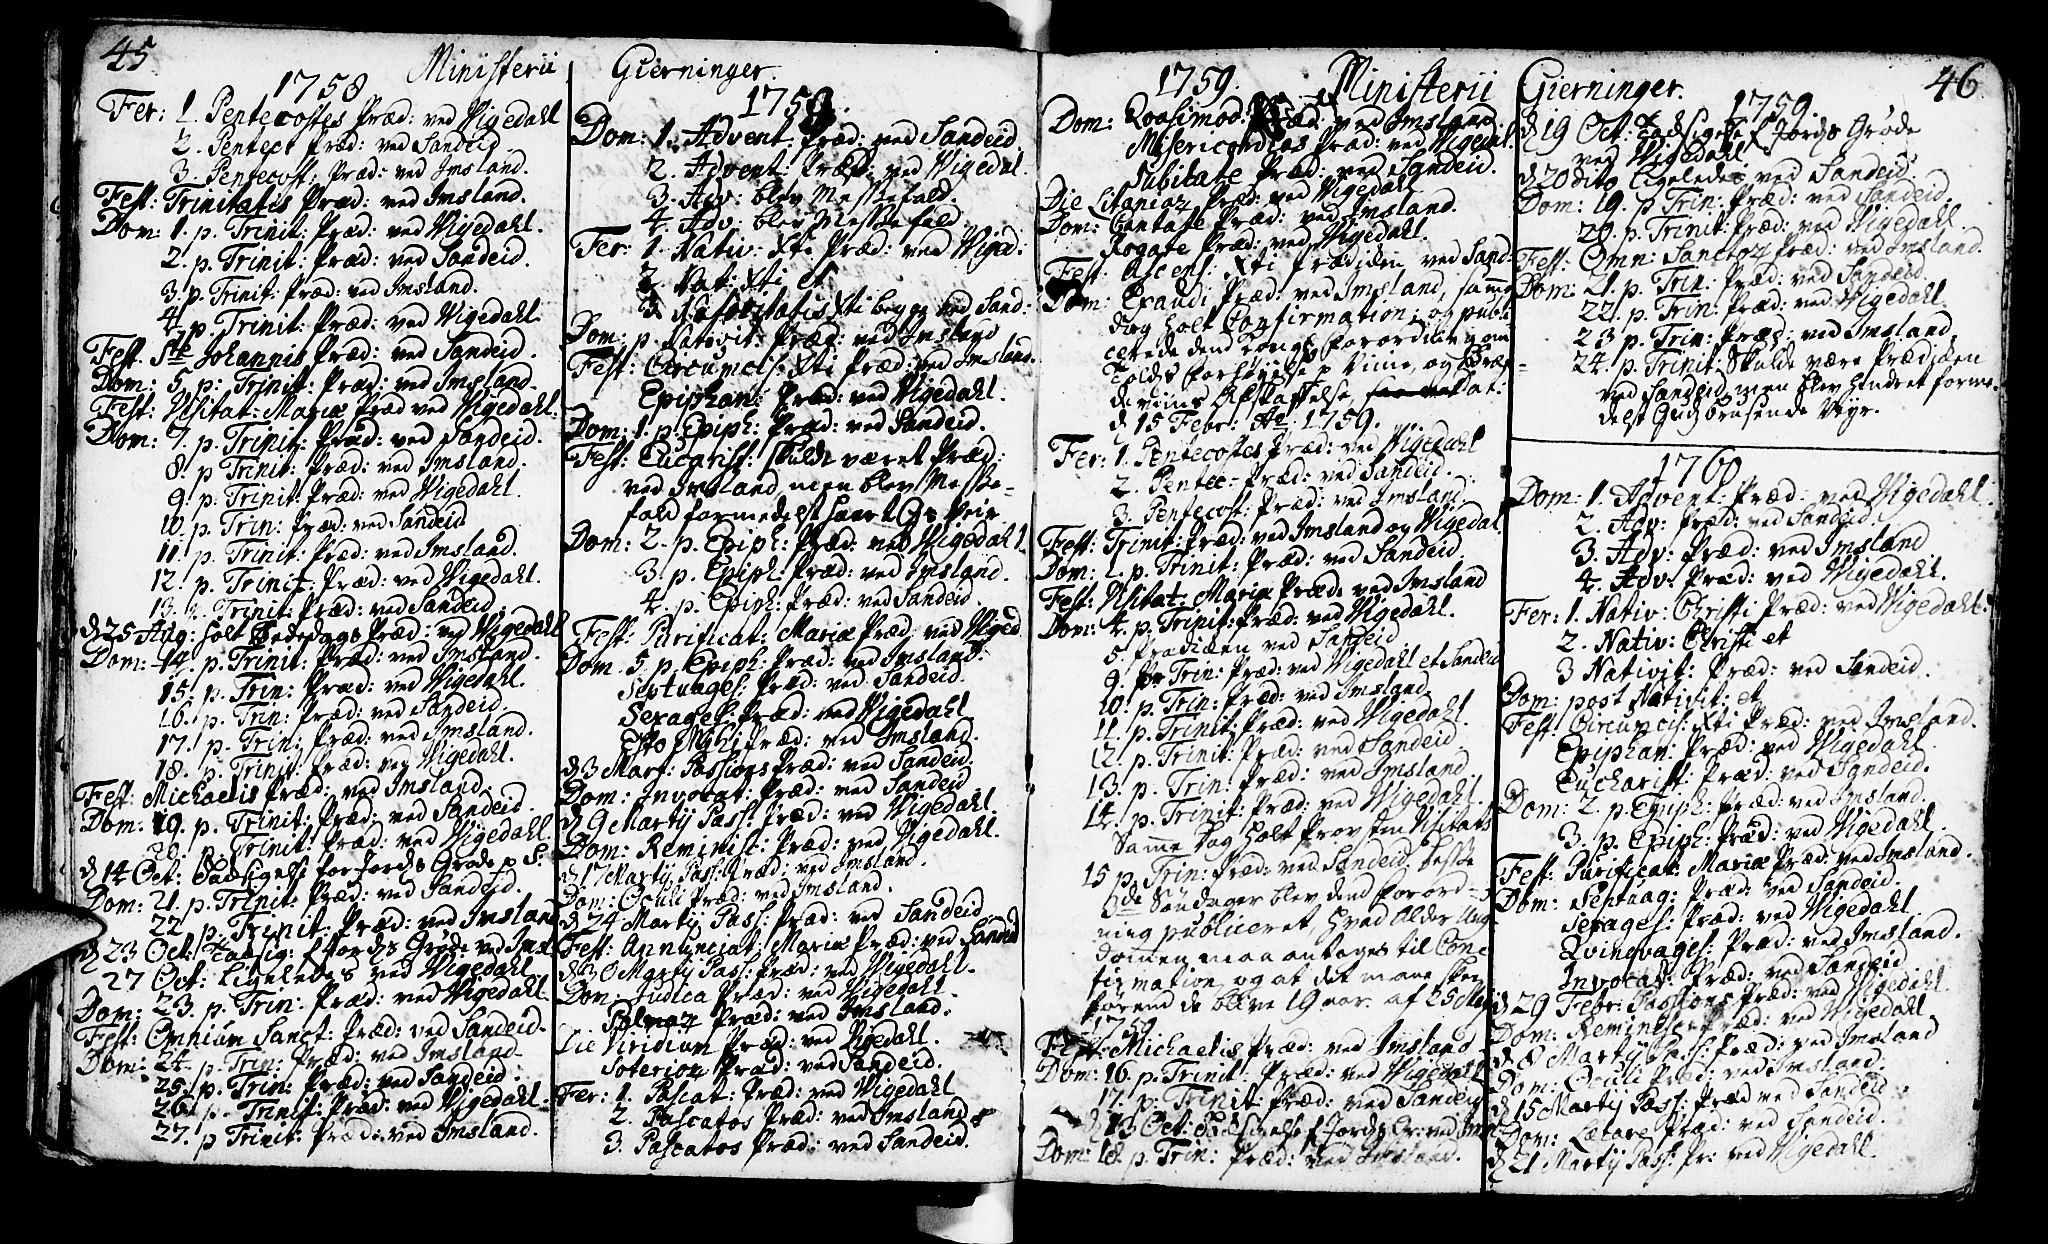 45 Ministerii Gierninger.
1758
Fer: 1. Pentecostes Præd: ved Vigedahl
2. Pentect Præd: ved Sandeid.
3. Pentecost: Præd: ved Imsland.
Fest: Trinitatis Præd: ved Imsland.
Dom: 1. p. Trinit: Præd: ved Vigedahl.
2. p. Trinit: Præd: ved Sandeid.
3. p. Trinit: Præd: ved Imsland.
4. p. Trinit: Præd: ved Vigedahl.
Fest: Ste Johannis Præd: ved Sandeid.
Dom: 5. p: Trinit: Præd: ved Imsland.
Fest: Visitat: Mariæ Præd ved Vigedahl.
Dom: 7. p. Trinit: Præd: ved Sandeid.
8. p Trinit: Præd: ved Imsland.
9. p. Trinit: Præd: ved Vigedahl.
10. p. Trin: Præd: ved Sandeid
11. p. Trinit: Præd: ved Imsland.
12. p. Trinit: Præd: ved Vigedahl.
13. p. Trinit: Præd: ved Sandeid
d 25 Aug: holt Bededags Præd: ved Vigedahl
Dom: 14. p. Trinit: Præd: ved Imsland.
15. p. Trin: Præd: ved Vigedahl.
16. p. Trin: Præd: ved Sandeid.
17. p. Trin: Præd: ved Imsland.
18. p. Trinit: Præd: ved Vigedahl.
Fest: Michaelis Præd: ved Imsland
Dom: 19. p. Trinit: Præd: ved Sandeid.
20. p. Trinit: Præd: ved Vigedahl.
d 14 Oct: Tacsigelse for Jords Grøde p S:
Dom: 21. p. Trinit: Præd: ved Sandeid.
22. p. Trinit: Præd: ved Imsland
d 23 Oct: Tacsig: f Jords Grøde ved Imsl
27 Oct: Ligeledes ved Vigedahl.
Dom: 23. p. Trin: Præd: ved Vigedahl.
Fest: Omnium Sanct: Præd: ved Sandeid.
Dom: 24. p. Trin: Præd: ved Imsland
25. p. Trin: Præd: ved Sandeid.
26. p. Trinit: Præd: ved Vigedahl.
27. p Trinit: Præd: ved Imsland.
1759.
Dom: 1. Advent: Præd: ved Sandeid
2. Advent: Præd: ved Vigedal.
3. Adv: blev Messefald.
4. Adv: blev Messefald.
Fer: 1. Nativ: Xti Præd: ved Viged:
2. Nat: Xti et
3 Nativitatis Xti begge ved Sand:
Dom: p. Nativit: Præd: ved Imsland
Fest: Circumcis: Xti Præd: ved Imsland.
Epiphan: Præd: ved Vigedahl.
Dom: 1. p. Epiph: Præd: ved Sandeid.
Fest: Eucarist: skulde været Præd:
ved Imsland, men blev Messe-
fald formedelst haart Veir
Dom: 2. p. Epiph: Præd: ved Vigedahl.
3. p. Epiph: Præd: ved Imsland.
4. p. Epiph: Præd: ved Sandeid.
Fest: Purificat: Mariæ Præd: ved Viged
Dom 5. p. Epiph: Præd: ved Imsland.
Septuages: Præd: ved Sandeid.
Sexages: Præd: ved Vigedahl
Esto Mihi Præd: ved Imsland.
d 3 Mart: Passions Præd: ved Sandeid.
Dom: Invocat: Præd: ved Sandeid
d 9 Martij Pass: Præd: ved Vigedahl.
Dom: Reminisc: Præd: ved Vigedahl.
d 17 Martij Pass: Præd: ved Imsland.
Dom: Oculi Præd: ved Imsland.
d 24 Martij Pass: Præd: ved Sandeid
Fest: Annunciat: Mariæ Præd: ved Sandeid
d 30 Martij Pass: Præd: ved Vigedahl.
Dom: Judica Præd: ved Vigedahl.
Palmar Præd: ved Imsland.
Die Viridium Præd: ved Vigedahl.
Soterion Præd: ved Sandeid.
Fer: 1. Pascat: Præd: ved Vigedahl
2. Pascatos Præd: ved Imsland
3. Pascatos Præd: ved Sandeid.
1759. Ministerii Gierninger. 46
Dom: Qvasimod: Præd: ved Imsland.
Misericordias Præd: ved Vigedal.
Jubilate Præd: ved Sandeid.
Die Litaniar Præd: ved Vigedahl
Dom: Cantate Præd: ved Imsland.
Rogate Præd: ved Vigedahl.
Fest: Ascens: Xti Prædiken ved Sand-
Dom: Exaudi Præd: ved Imsland, samme
dag holt Confirmation; og publi
cerede dend Kongl Forordning om
Tolds Forhøyelse p Viine, og
deviins Afskaffelse, dat:
d 15 Febr: Ao 1759.
Fer: 1. Pentecostes Præd: ved Vigedahl
2. Pentec: Præd: ved Sandeid.
3. Pentecost: Præd: ved Imsland
Fest: Trinit: Præd: ved Imsland og Vigedal
Dom: 1. p. Trinit: Præd: ved Sandeid.
Fest: Visitat: Mariæ Præd: ved Imsland
Dom: 4. p. Trinit: Præd: ved Vigedahl.
5 Prædiken ved Sandeid
9. p Trin: Præd: ved Vigedahl et Sandeid
10. p. Trin: Præd: ved Imsland
11. p. Trinit: Præd: ved Vigedahl.
12. p. Trinit: Præd: ved Sandeid.
13. p. Trin: Præd: ved Imsland.
14. p. Trinit: Præd: ved Vigedahl.
Samme Dag holt Provsten Visitats
15 p. Trin: Præd: ved Sandeid. Disse
3de Søndager blev dend Forord-
ning publiceret, hvad Alder Ung
dommen maa antages til Conf
firmation, og at det maae skee
førend de blive 19 aar. af 25 Maij
1759.
Fest: Michaelis Præd: ved Imsland
Dom: 16. p. Trinit. Præd: ved Vigedahl
17. p. Trinit: Præd: ved Sandeid
d 13 Oct: Tacsigelse f Jords Gr: ved Imsl
Dom: 18. p. Trin: Præd: ved Imsland.
1759.
d 19 Oct: Tacksigelse f Jords Grøde
ved Vigedahl
d 20 dito ligeledes ved Sandeid.
Dom: 19. p Trin: Præd: ved Sandeid.
20. p. Trinit: Præd: ved Vigedahl.
Fest: Omn: Sanctor Præd: ved Imsland.
Dom: 21. p. Trin: Præd: ved Sandeid.
22. p. Trin: Præd: ved Vigedahl.
23 p. Trin: Præd: ved Imsland
24. p. Trinit: Skulde være Prædiken
ved Sandeid, men blev hindret forme-
delst Gud brusende Vejr.
1760
Dom: 1. Advent: Præd: ved Vigedahl.
2. Adv: Præd: ved Sandeid.
3. Adv: Præd: ved Imsland
4. Adv: Præd: ved Vigedahl.
Fer: 1. Nativ: Christi Præd: ved Vigedahl.
2. Nativ: Christi et
3 Nativit: Præd: ved Sandeid.
Dom: post Nativit: et
Fest Circumcis: Xti Præd: ved Imsland.
Epiphan: Præd: ved Vigedahl.
Eucharist: Præd: ved Sandeid.
Dom: 2. p. Epiph: Præd: ved Imsland.
3. p. Epiph: Præd: ved Vigedahl.
Fest: Purificat: Mariæ Præd: ved Imsland.
Dom: Septuag: Præd: ved Sandeid.
Sexages: Præd: ved Vigedahl.
Qvinqvages: Præd: ved Imsland.
Invocat: Præd: ved Sandeid
d 29 Febr: Passions Præd: ved Vigedahl.
Dom: Reminisc: Præd: ved Vigedahl
d 8 Martij Pass: Præd: ved Imsland
Dom: Oculi Præd: ved Imsland.
d 15 Martij Pass: Præd ved Sandeid
Dom: Lætare Præd: ved Sandeid.
d 21 Martij Pass: Pr: ved Vigedahl.